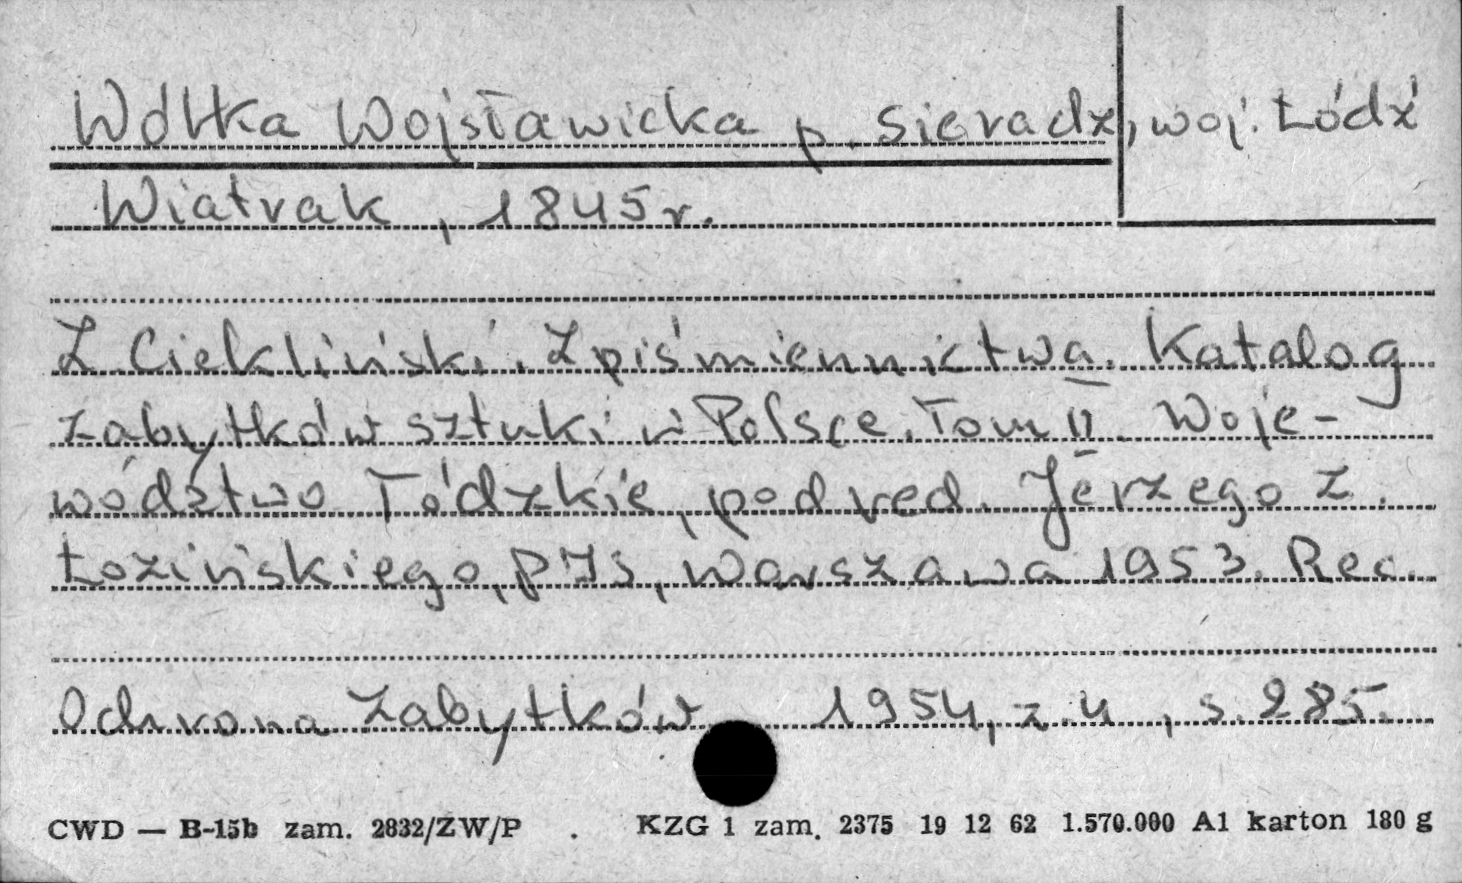 Wólka Wojsławicka p. Sieradz, woj. Łódź
Wiatrak, 1845 r.
Z. Ciekliński. Z piśmiennictwa. Katalog
zabytków sztuki w Polsce. Tom II. Woje-
wództwo Łódzkie, pod red. Jerzego Z.
Łozińskiego, PIS, Warszawa 1953. Rec.
Ochrona Zabytków 1954, z. 4, s. 285.
CWD — B-15b zam. 2832/ŻW/P . KZG 1 zam. 2375 19 12 62 1.570.000 A1 karton 180 g